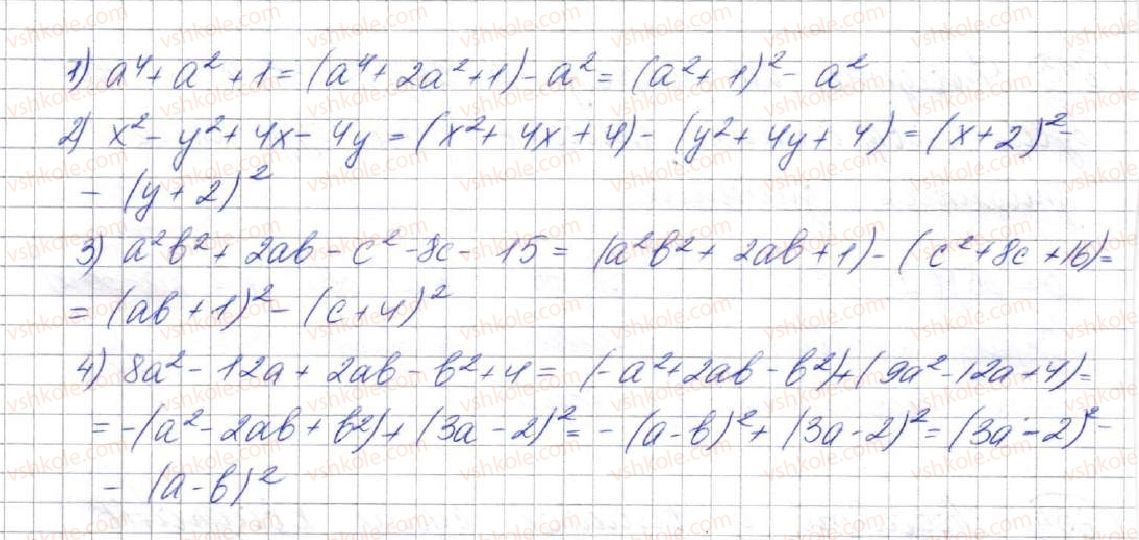 1) a⁴ + a² + 1 = (a⁴ + 2a² + 1) - a² = (a² + 1)² - a²
2) x² - y² + 4x - 4y = (x² + 4x + 4) - (y² + 4y + 4) = (x + 2)² -
- (y + 2)²
3) a²b² + 2ab - c² - 8c - 15 = (a²b² + 2ab + 1) - (c² + 8c + 16) =
= (ab + 1)² - (c + 4)²
4) 8a² - 12a + 2ab - b² + 4 = (-a² + 2ab - b²) + (9a² - 12a + 4) =
= -(a² - 2ab + b²) + (3a - 2)² = -(a - b)² + (3a - 2)² = (3a - 2)² -
- (a - b)²